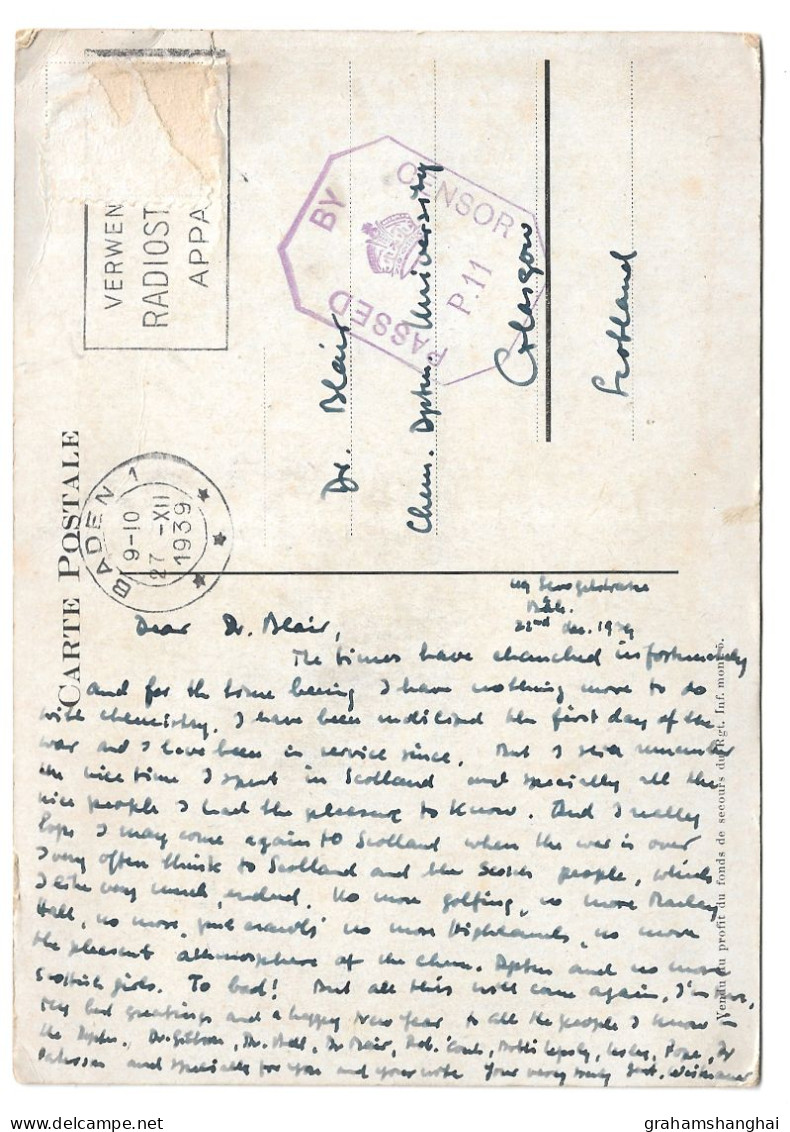 CARTE POSTALE
VERWEN
RADIOST
APPA
BADEN 1
9-10
27 -XII
1939
PASSED BY CENSOR
P.11
Dr. Blair
Chem. Dptm. University
Glasgow
Scotland
22nd dec. 1939
Dear Dr. Blair,
The times have chanched infortunately
and for the time being I have nothing more to do
with chemistry. I have been mobilized the first day of the
war and I have been in service since. But I still remember
the nice time I spent in Scotland and specially all the
nice people I had the pleasure to know. And I really
hope I may come again to Scotland when the war is over
I very often think to Scotland and the Scotch people, which
I like very much, indeed. No more golfing, no more
Hall, no more no more Highlands, no more
the pleasent athmosphere of the Chem. Dptm and no more
Scottish girls. To bad! But all this will come again, I'm sure,
My best greetings and a happy New Year to all the people I know in
the Dptm. Dr. Gibson, Dr. Bell, Dr. Blair, Lesley, Pope, Dr
Paterson and specially for you and your wife Your very truly
Vendu au profit du fonds de secours du Rgt. Inf. mont. 6.
grahamshanghai